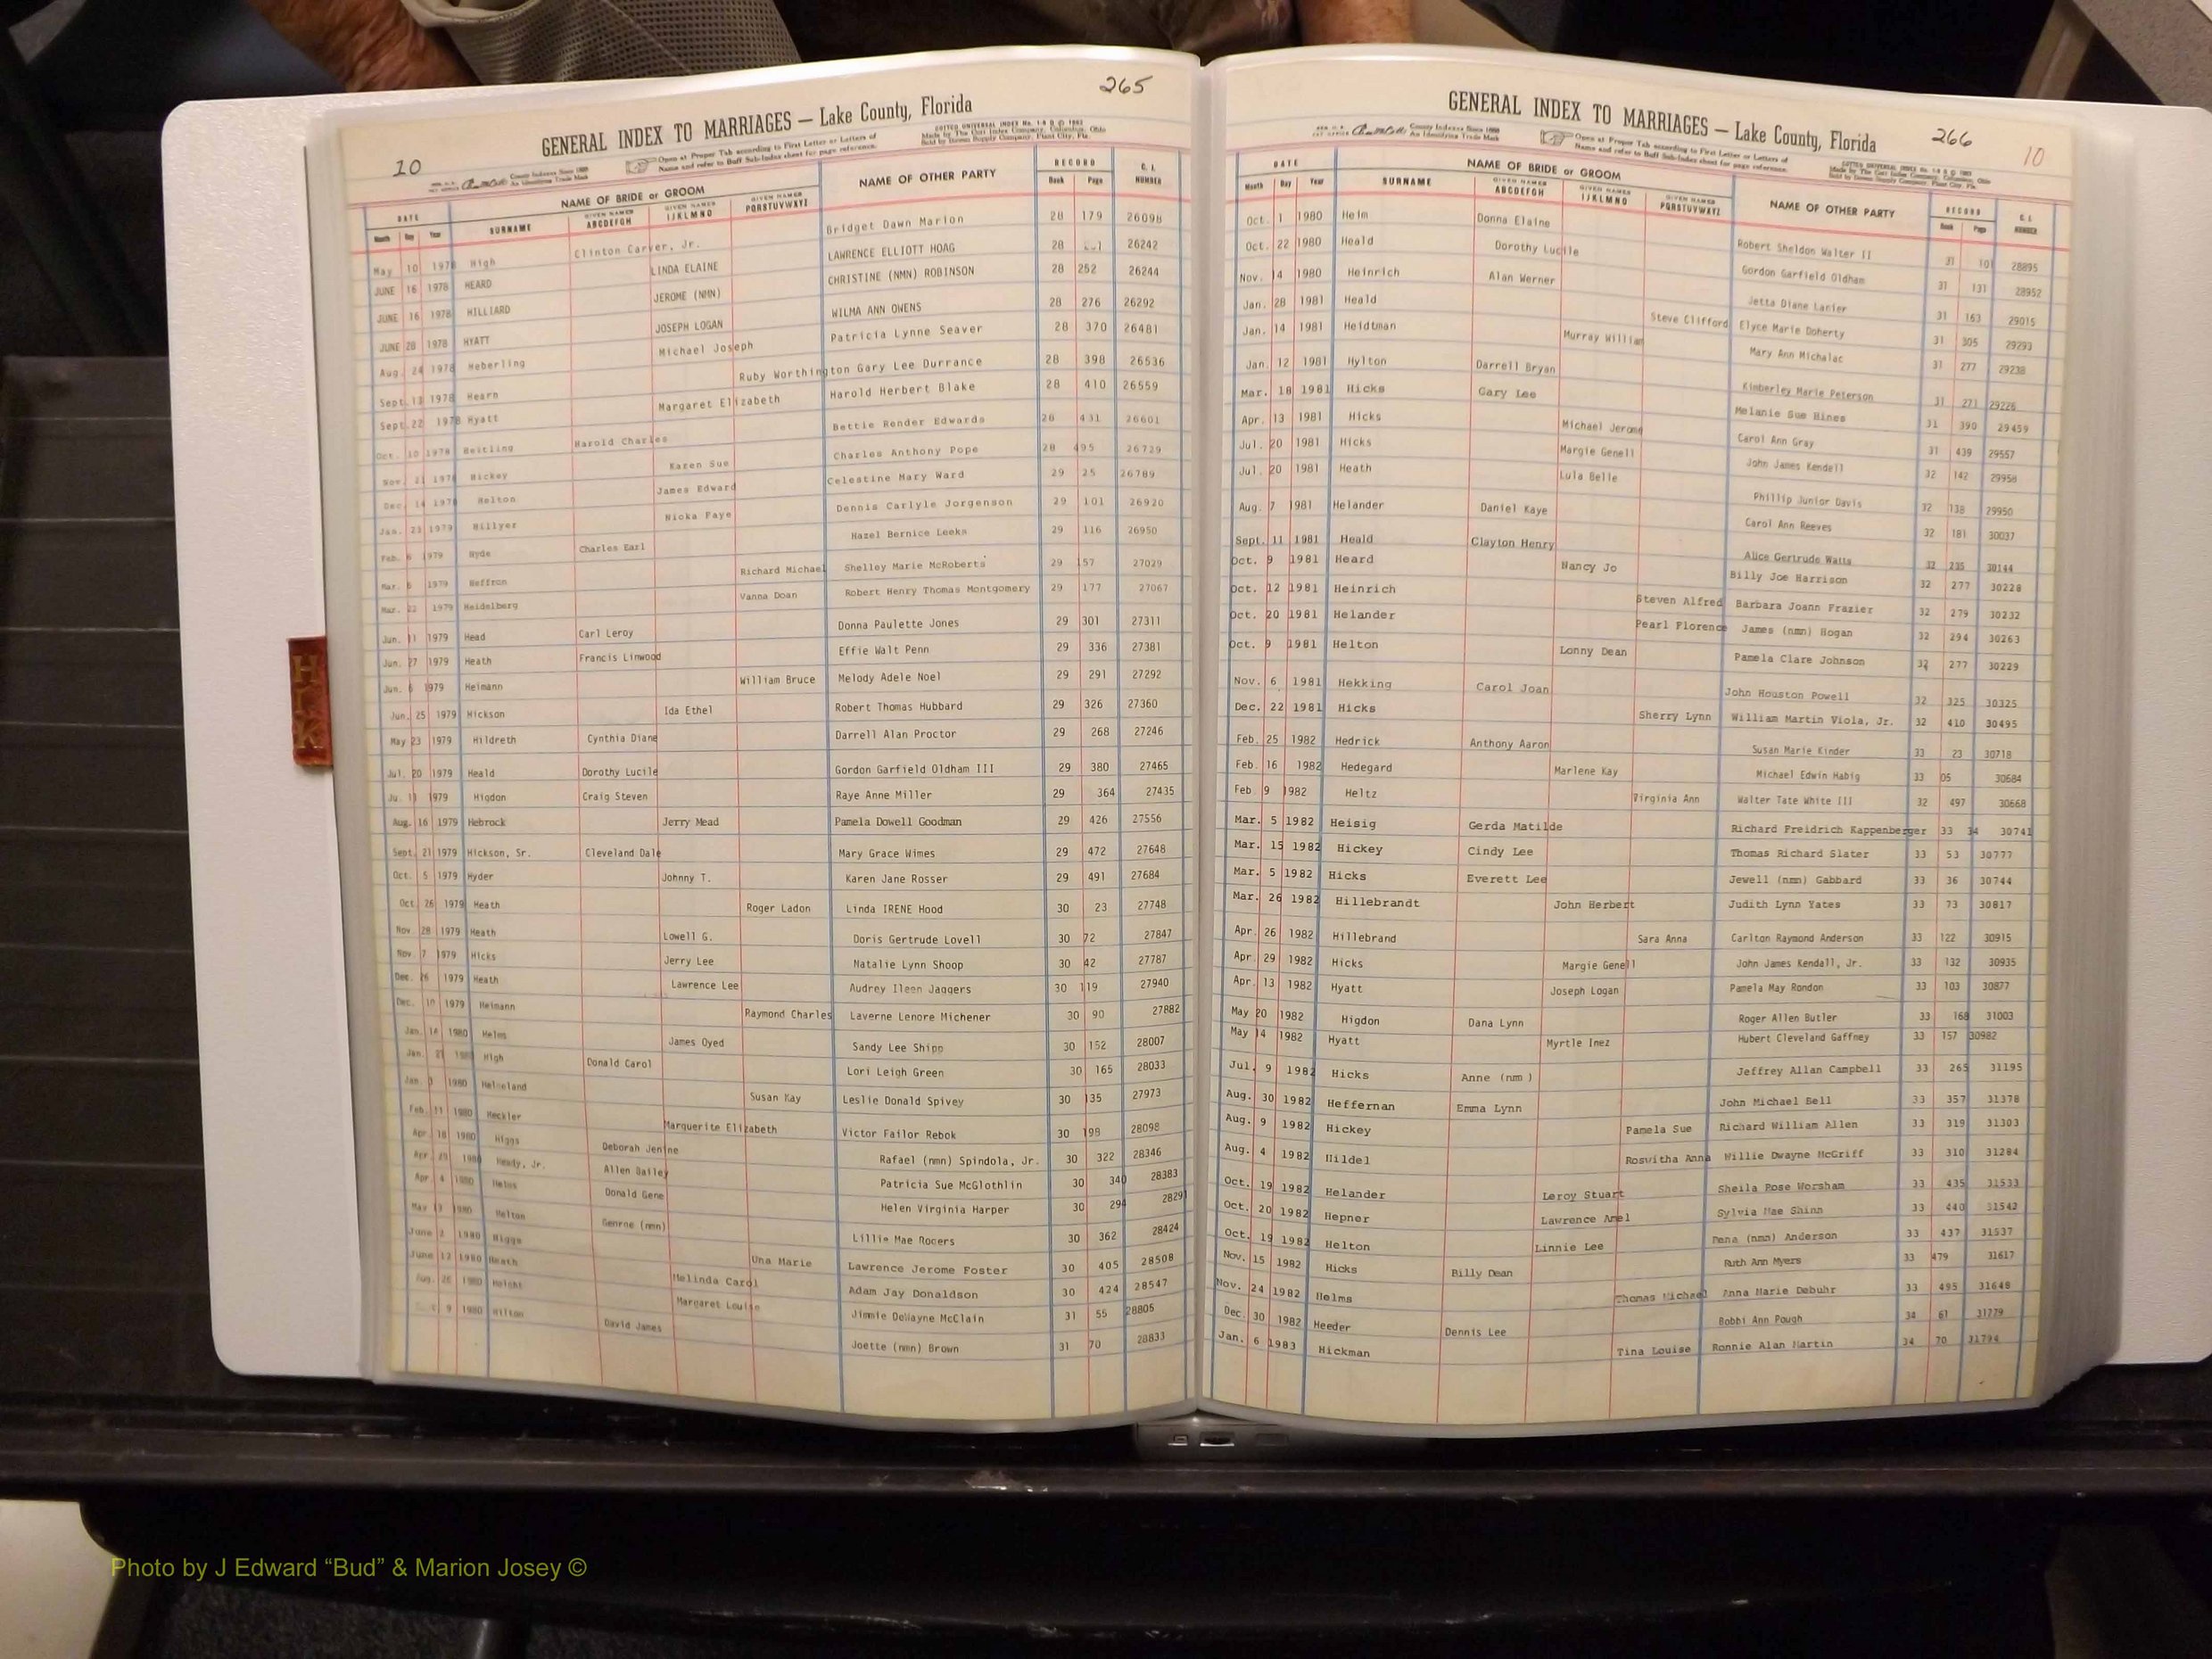 265
10
GENERAL INDEX TO MARRIAGES — Lake County, Florida
County Indexes Since 1888
An Identifying Trade Mark
Open at Proper Tab according to First Letter or Letters of
Name and refer to Buff Sub-Index sheet for page reference.
Made by The Cott Index Company, Columbus, Ohio
Sold by Downs Supply Company, Plant City, Fla.
DATE NAME OF BRIDE or GROOM NAME OF OTHER PARTY RECORD C. I. NUMBER
Month Day Year SURNAME GIVEN NAMES ABCDEFGH GIVEN NAMES IJKLMNO GIVEN NAMES PQRSTUVWXYZ Book Page
May 10 1978 High Clinton Carver, Jr. Bridget Dawn Marion 28 179 26098
JUNE 16 1978 HEARD LINDA ELAINE LAWRENCE ELLIOTT HOAG 28 26242
JUNE 16 1978 HILLIARD JEROME (NMN) CHRISTINE (NMN) ROBINSON 28 252 26244
JUNE 28 1978 HYATT JOSEPH LOGAN WILMA ANN OWENS 28 276 26292
Aug. 24 1978 Heberling Michael Joseph Patricia Lynne Seaver 28 370 26481
Sept. 13 1978 Hearn Ruby Worthington Gary Lee Durrance 28 398 26536
Sept. 22 1978 Hyatt Margaret Elizabeth Harold Herbert Blake 28 410 26559
Oct. 10 1978 Heitling Harold Charles Bettie Render Edwards 28 431 26601
Nov. 21 1978 Hickey Karen Sue Charles Anthony Pope 28 495 26729
Dec. 14 1978 Helton James Edward Celestine Mary Ward 29 25 26789
Jan. 23 1979 Hillyer Nicka Faye Dennis Carlyle Jorgenson 29 101 26920
Feb. 6 1979 Hyde Charles Earl Hazel Bernice Leeks 29 116 26950
Mar. 6 1979 Heffron Richard Michael Shelley Marie McRoberts 29 157 27029
Mar. 22 1979 Heidelberg Vanna Doan Robert Henry Thomas Montgomery 29 177 27067
Jun. 11 1979 Head Carl Leroy Donna Paulette Jones 29 301 27311
Jun. 27 1979 Heath Francis Linwood Effie Walt Penn 29 336 27381
Jun. 6 1979 Heimann William Bruce Melody Adele Noel 29 291 27292
Jun. 25 1979 Hickson Ida Ethel Robert Thomas Hubbard 29 326 27360
May 23 1979 Hildreth Cynthia Diane Darrell Alan Proctor 29 268 27246
Jul. 20 1979 Heald Dorothy Lucile Gordon Garfield Oldham III 29 380 27465
Ju. 1979 Higdon Craig Steven Raye Anne Miller 29 364 27435
Aug. 16 1979 Hebrock Jerry Mead Pamela Dowell Goodman 29 426 27556
Sept. 21 1979 Hickson, Sr. Cleveland Dale Mary Grace Wimes 29 472 27648
Oct. 5 1979 Hyder Johnny T. Karen Jane Rosser 29 491 27684
Oct. 26 1979 Heath Roger Ladon Linda IRENE Hood 30 23 27748
Nov 28 1979 Heath Lowell G. Doris Gertrude Lovell 30 72 27847
Nov. 7 1979 Hicks Jerry Lee Natalie Lynn Shoop 30 42 27787
Dec. 26 1979 Heath Lawrence Lee Audrey Ileen Jaggers 30 119 27940
Dec. 10 1979 Heimann Raymond Charles Laverne Lenore Michener 30 90 27882
Jan. 14 1980 Helms James Oyed Sandy Lee Shipp 30 152 28007
Jan. 1980 High Donald Carol Lori Leigh Green 30 165 28033
Jan. 3 1980 Susan Kay Leslie Donald Spivey 30 135 27973
Feb. 11 1980 Heckler Marguerite Elizabeth Victor Failor Rebok 30 198 28098
Apr. 18 1980 Higgs Deborah Jenine Rafael (nmn) Spindola, Jr. 30 322 28346
Apr. 29 1980 Heady, Jr. Allen Dailey Patricia Sue McGlothlin 30 340 28383
Apr. 4 1980 Helms Donald Gene Helen Virginia Harper 30 294 2829
May 13 1980 Helton George (nmn) Lillie Mae Rogers 30 362 28424
June 2 1980 Higgs Una Marie Lawrence Jerome Foster 30 405 28508
June 12 1980 Heath Melinda Carol Adam Jay Donaldson 30 424 28547
Aug. 26 1980 Height Margaret Louise Jimmie DeWayne McClain 31 55 28805
9 1980 Hilton David James Joette (nmn) Brown 31 70 28833
HIK
GENERAL INDEX TO MARRIAGES — Lake County, Florida
266
10
County Indexes Since 1888
An Identifying Trade Mark
Open at Proper Tab according to First Letter or Letters of
Name and refer to Buff Sub-Index sheet for page reference.
DATE NAME OF BRIDE or GROOM NAME OF OTHER PARTY RECORD C. I. NUMBER
Month Day Year SURNAME GIVEN NAMES ABCDEFGH GIVEN NAMES IJKLMNO GIVEN NAMES PQRSTUVWXYZ Book Page
Oct. 1 1980 Heim Donna Elaine Robert Sheldon Walter II 31 101 28895
Oct. 22 1980 Heald Dorothy Lucile Gordon Garfield Oldham 31 131 28952
Nov. 14 1980 Heinrich Alan Werner Jetta Diane Lanier 31 163 29015
Jan. 28 1981 Heald Steve Clifford Elyce Marie Doherty 31 305 29293
Jan. 14 1981 Heidtman Murray William Mary Ann Michalac 31 277 29238
Jan. 12 1981 Hylton Darrell Bryan Kimberley Marie Peterson 31 271 29226
Mar. 18 1981 Hicks Gary Lee Melanie Sue Hines 31 390 29459
Apr. 13 1981 Hicks Michael Jerome Carol Ann Gray 31 439 29557
Jul. 20 1981 Hicks Margie Genell John James Kendell 32 142 29958
Jul. 20 1981 Heath Lula Belle Phillip Junior Davis 32 138 29950
Aug. 7 1981 Helander Daniel Kaye Carol Ann Reeves 32 181 30037
Sept. 11 1981 Heald Clayton Henry Alice Gertrude Watts 32 235 30144
Oct. 9 1981 Heard Nancy Jo Billy Joe Harrison 32 277 30228
Oct. 12 1981 Heinrich Steven Alfred Barbara Joann Frazier 32 279 30232
Oct. 20 1981 Helander Pearl Florence James (nmn) Hogan 32 294 30263
Oct. 9 1981 Helton Lonny Dean Pamela Clare Johnson 32 277 30229
Nov. 6 1981 Hekking Carol Joan John Houston Powell 32 325 30325
Dec. 22 1981 Hicks Sherry Lynn William Martin Viola, Jr. 32 410 30495
Feb. 25 1982 Hedrick Anthony Aaron Susan Marie Kinder 33 23 30718
Feb. 16 1982 Hedegard Marlene Kay Michael Edwin Habig 33 05 30684
Feb. 9 1982 Heltz Virginia Ann Walter Tate White III 32 497 30668
Mar. 5 1982 Heisig Gerda Matilde Richard Freidrich Kappenberger 33 34 30741
Mar. 15 1982 Hickey Cindy Lee Thomas Richard Slater 33 53 30777
Mar. 5 1982 Hicks Everett Lee Jewell (nmn) Gabbard 33 36 30744
Mar. 26 1982 Hillebrandt John Herbert Judith Lynn Yates 33 73 30817
Apr. 26 1982 Hillebrand Sara Anna Carlton Raymond Anderson 33 122 30915
Apr. 29 1982 Hicks Margie Genell John James Kendall, Jr. 33 132 30935
Apr. 13 1982 Hyatt Joseph Logan Pamela May Rondon 33 103 30877
May 20 1982 Higdon Dana Lynn Roger Allen Butler 33 168 31003
May 14 1982 Hyatt Myrtle Inez Hubert Cleveland Gaffney 33 157 30982
Jul. 9 1982 Hicks Anne (nm ) Jeffrey Allan Campbell 33 265 31195
Aug. 30 1982 Heffernan Emma Lynn John Michael Bell 33 357 31378
Aug. 9 1982 Hickey Pamela Sue Richard William Allen 33 319 31303
Aug. 4 1982 Hildel Roswitha Anna Willie Dwayne McGriff 33 310 31284
Oct. 19 1982 Helander Leroy Stuart Sheila Rose Worsham 33 435 31533
Oct. 20 1982 Hepner Lawrence Ariel Sylvia Mae Shinn 33 440 31542
Oct. 19 1982 Helton Linnie Lee Dena (nmn) Anderson 33 437 31537
Nov. 15 1982 Hicks Billy Dean Ruth Ann Myers 33 479 31617
Nov. 24 1982 Helms Thomas Michael Anna Marie Debuhr 33 495 31648
Dec. 30 1982 Heeder Dennis Lee Bobbi Ann Pough 34 61 31779
Jan. 6 1983 Hickman Tina Louise Ronnie Alan Martin 34 70 31794
Photo by J Edward “Bud” & Marion Josey ©